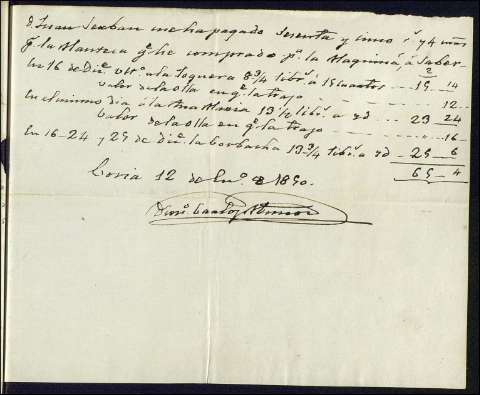 Dn Juan Seaban me ha pagado Sesenta y cinco rs y 4 mrs
pr la Manteca qe he comprado pa la Maquina, á Saber
En 16 de Dice ulto a la Toquera 8 3/4 libs á 15 cuartos -- 15 - 14
Valor de la olla en qe la trajo ---- 12
En el mismo dia á la Ana Maria 13 1/2 libs a rd -- 23 - 24
Valor de la olla en qe la trajo ---- 16
En 16-24 y 29 de Dice la borracha 13 3/4 libs a rd -- 25 - 6
65 - 4
Coria 12 de Eno de 1850.